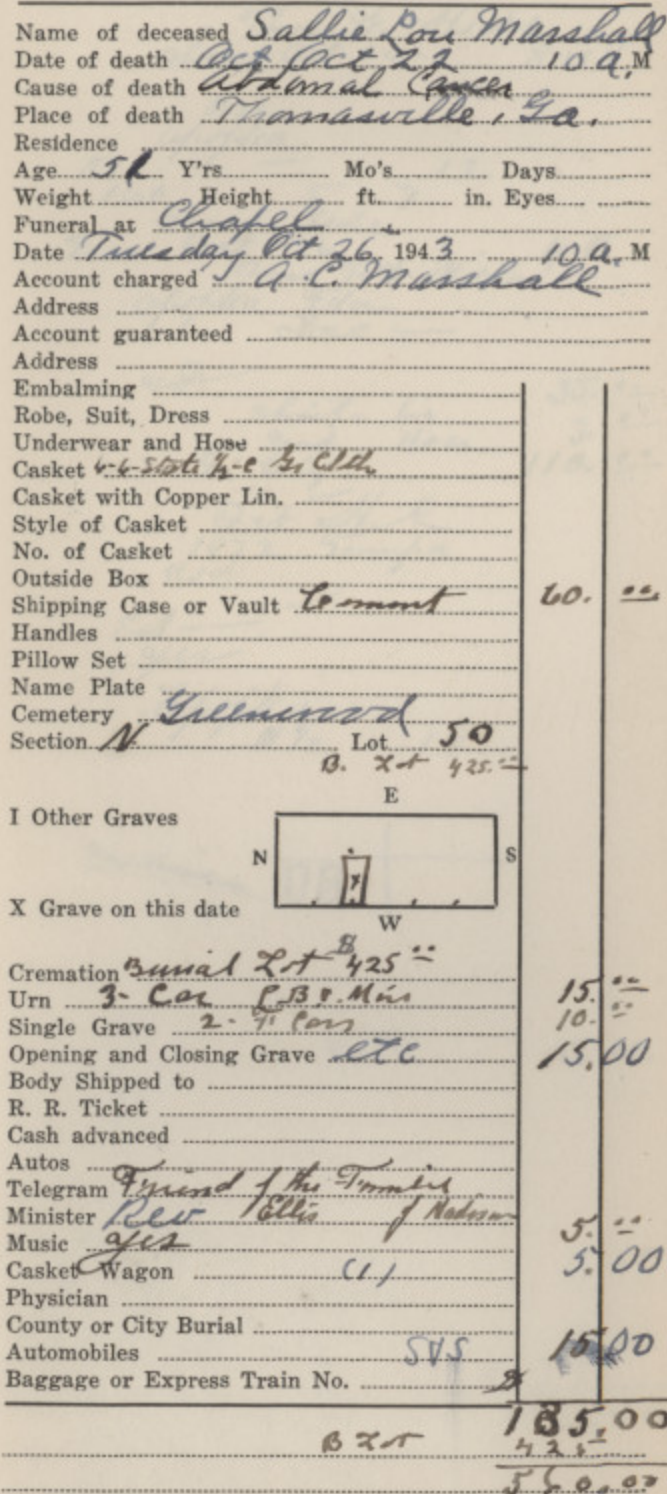 Name of deceased Sallie Lou Marshall
Date of death Oct Oct 22 10 a. M
Cause of death Abdomal Cancer
Place of death Thomasville, Ga.
Residence
Age 51 Y'rs. Mo's. Days
Weight Height ft. in. Eyes
Funeral at Chapel
Date Tuesday Oct 26 1943 10 a. M
Account charged A. C. Marshall
Address
Account guaranteed
Address
Embalming
Robe, Suit, Dress
Underwear and Hose
Casket 6-6-State
Casket with Copper Lin.
Style of Casket
No. of Casket
Outside Box
Shipping Case or Vault Cement 60. 00
Handles
Pillow Set
Name Plate
Cemetery Greenwood
Section N Lot 50
B. Lot 425.00
E
I Other Graves
N S
X
X Grave on this date
W
Cremation Burial Lot $425 00
Urn 3- Car P.B.&. 15. 00
Single Grave 2- Cars 10. 00
Opening and Closing Grave etc 15.00
Body Shipped to
R. R. Ticket
Cash advanced
Autos
Telegram Friend of the Family
Minister Rev Ellis of Madison 5. 00
Music yes 5.00
Casket Wagon (1)
Physician
County or City Burial
Automobiles 15 00
Baggage or Express Train No.
135.00
B Lot 425
560.00